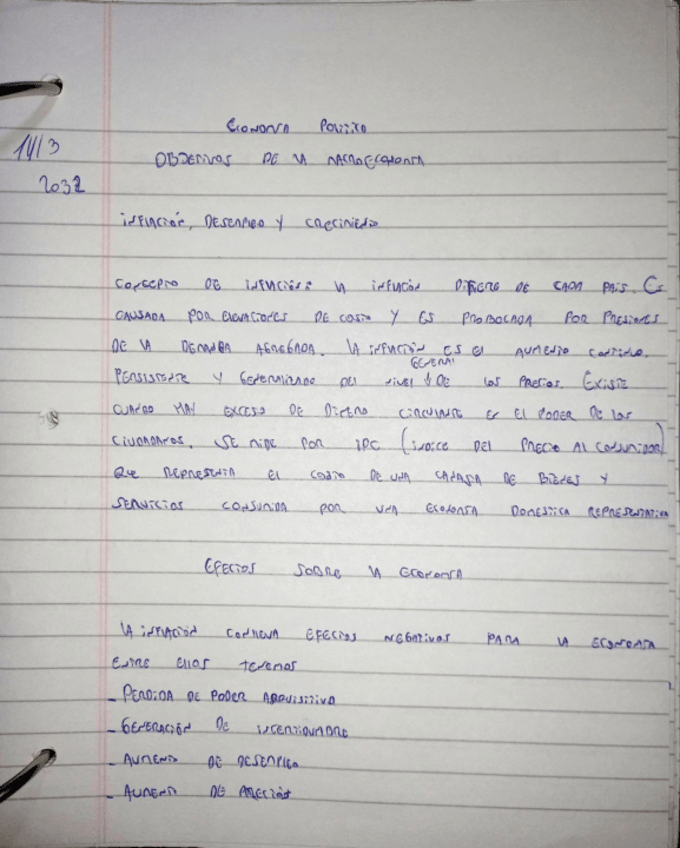 Economía Política
14/3
OBJETIVOS DE LA MACROECONOMÍA
2032
INFLACIÓN, DESEMPLEO Y CRECIMIENTO
CONCEPTO DE INFLACIÓN: LA INFLACIÓN DIFIERE DE CADA PAÍS. ES
CAUSADA POR ELEVACIONES DE COSTO Y ES PROBOCADA POR PRESIONES
DE LA DEMANDA AGREGADA. LA INFLACIÓN ES EL AUMENTO CONTINUO,
GENERAL
PERSISTENTE Y GENERALIZADO DEL NIVEL ↓ DE LOS PRECIOS. EXISTE
CUANDO HAY EXCESO DE DINERO CIRCULANTE EN EL PODER DE LOS
CIUDADANOS. SE MIDE POR IPC (INDICE DEL PRECIO AL CONSUMIDOR)
QUE REPRESENTA EL COSTO DE UNA CANASTA DE BIENES Y
SERVICIOS CONSUMIDA POR UNA ECONOMÍA DOMESTICA REPRESENTATIVA
EFECTOS SOBRE LA ECONOMÍA
LA INFLACIÓN CONLLEVA EFECTOS NEGATIVOS PARA LA ECONOMÍA
ENTRE ELLOS TENEMOS
- PERDIDA DE PODER ADQUISITIVO
- GENERACIÓN DE INCERTIDUMBRE
- AUMENTO DE DESEMPLEO
- AUMENTO DE PRECIOS